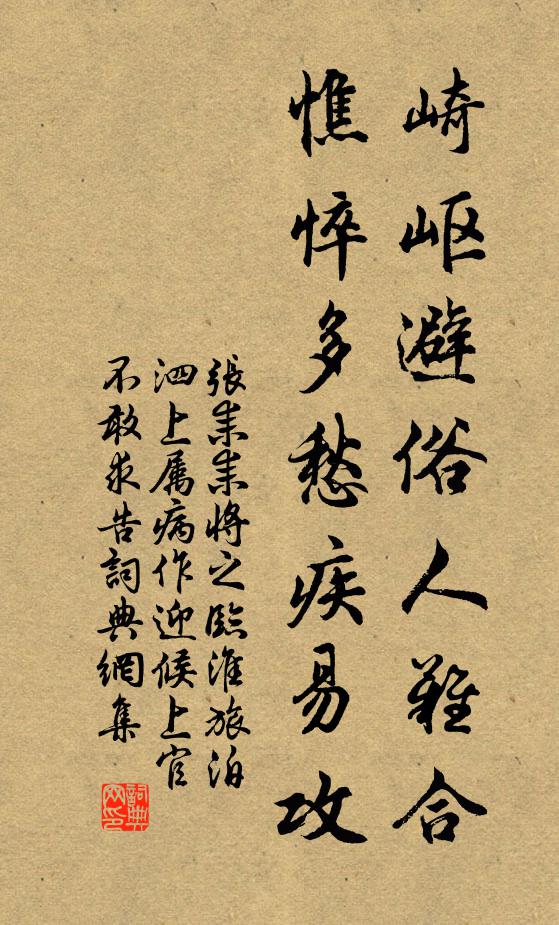 崎岖避俗人難合
憔悴多愁疾易攻
張耒耒將之臨淮旅泊
泗上属病作迎候上官
不敢求告詞典網集
詞典网印